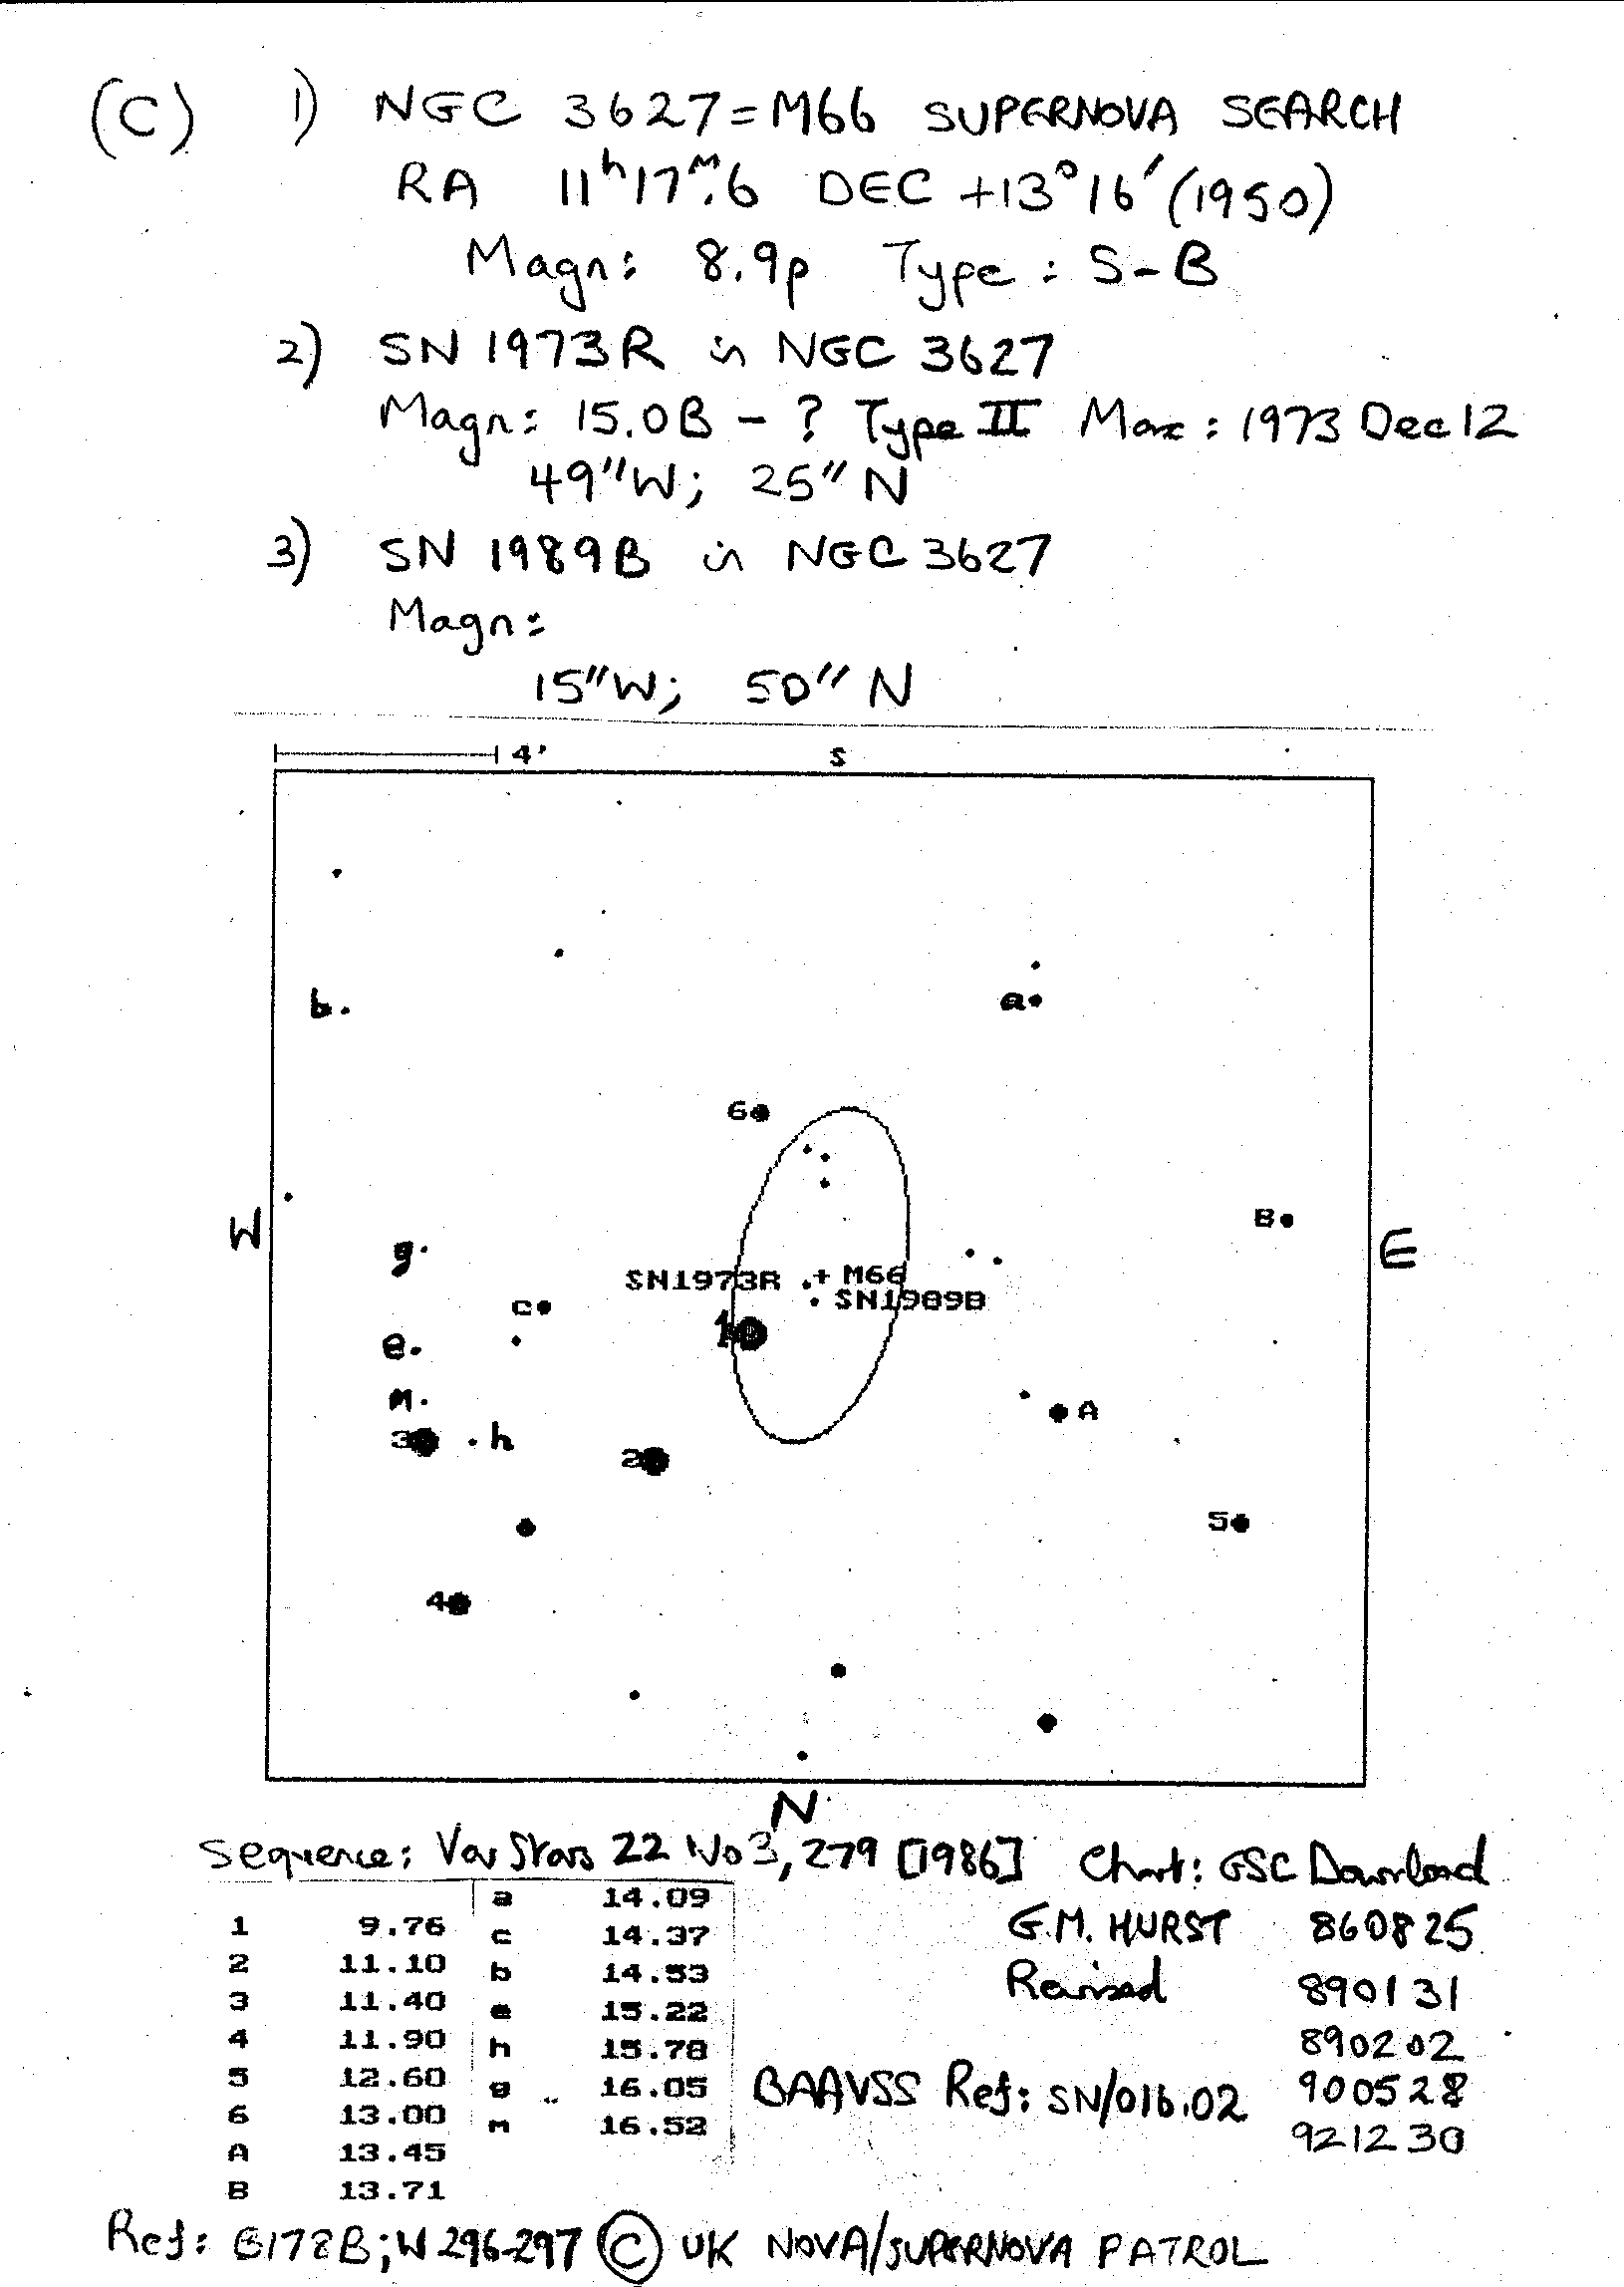 (C) 1) NGC 3627=M66 SUPERNOVA SEARCH
RA 11h17m.6 DEC +13°16′(1950)
Magn: 8.9p Type: S-B
2) SN 1973R in NGC 3627
Magn: 15.0B - ? Type II Max: 1973 Dec 12
49″W; 25″N
3) SN 1989B in NGC 3627
Magn:
15″W; 50″N
4' S
b.
a
6
W
B
E
g.
SN1973R + M66
SN1989B
c
1
e.
m.
A
3 h
2
5
4
N
Sequence: Var Stars 22 No 3, 279 [1986] Chart: GSC Download
a 14.09
1 9.76 c 14.37
2 11.10 b 14.53
3 11.40 e 15.22
4 11.90 h 15.78
5 12.60 g 16.05
6 13.00 m 16.52
A 13.45
B 13.71
G.M. HURST 860825
Revised 890131
890202
900528
921230
BAAVSS Ref: SN/016.02
Ref: B178B; W296-297 © UK NOVA/SUPERNOVA PATROL